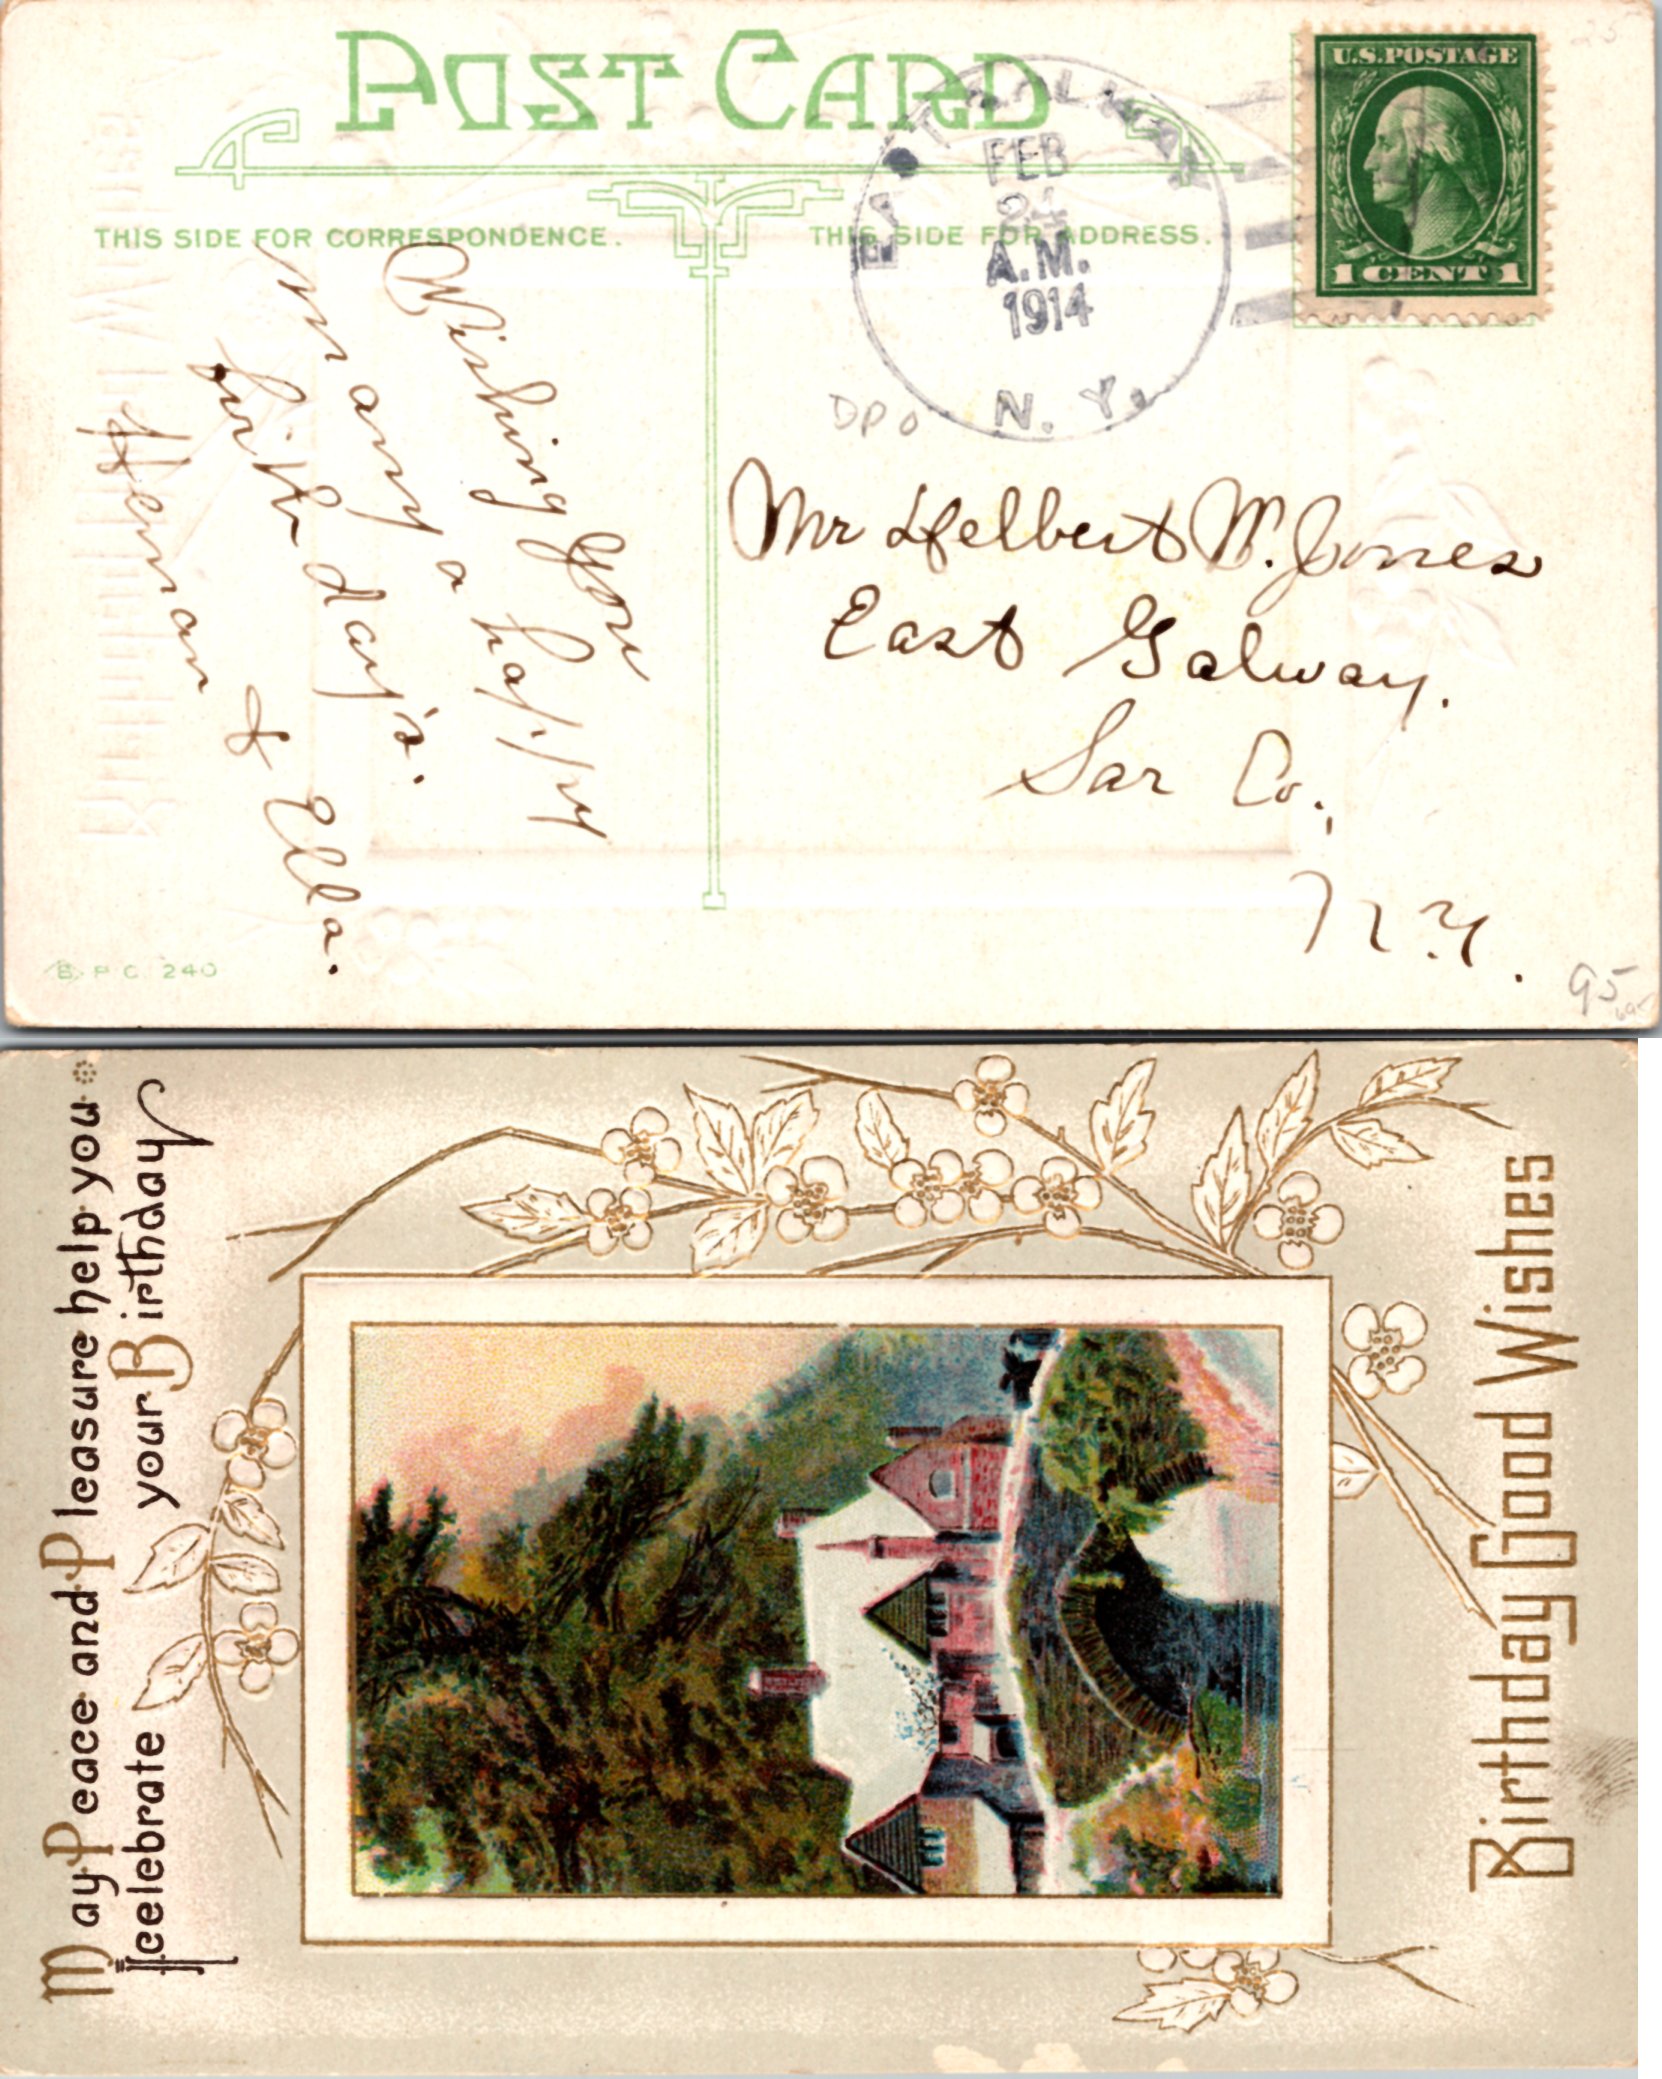 POST CARD
THIS SIDE FOR CORRESPONDENCE.
THIS SIDE FOR ADDRESS.
EAST GALWAY
FEB
24
A.M.
1914
N. Y.
U.S. POSTAGE
1 CENT 1
Wishing You
many a happy
birth day's.
Herman & Ella.
DPO
Mr Helbert W. Jones
East Galway.
Sar Co.,
N.Y.
B. P. C. 240
95
May Peace and Pleasure help you
celebrate your Birthday
Birthday Good Wishes